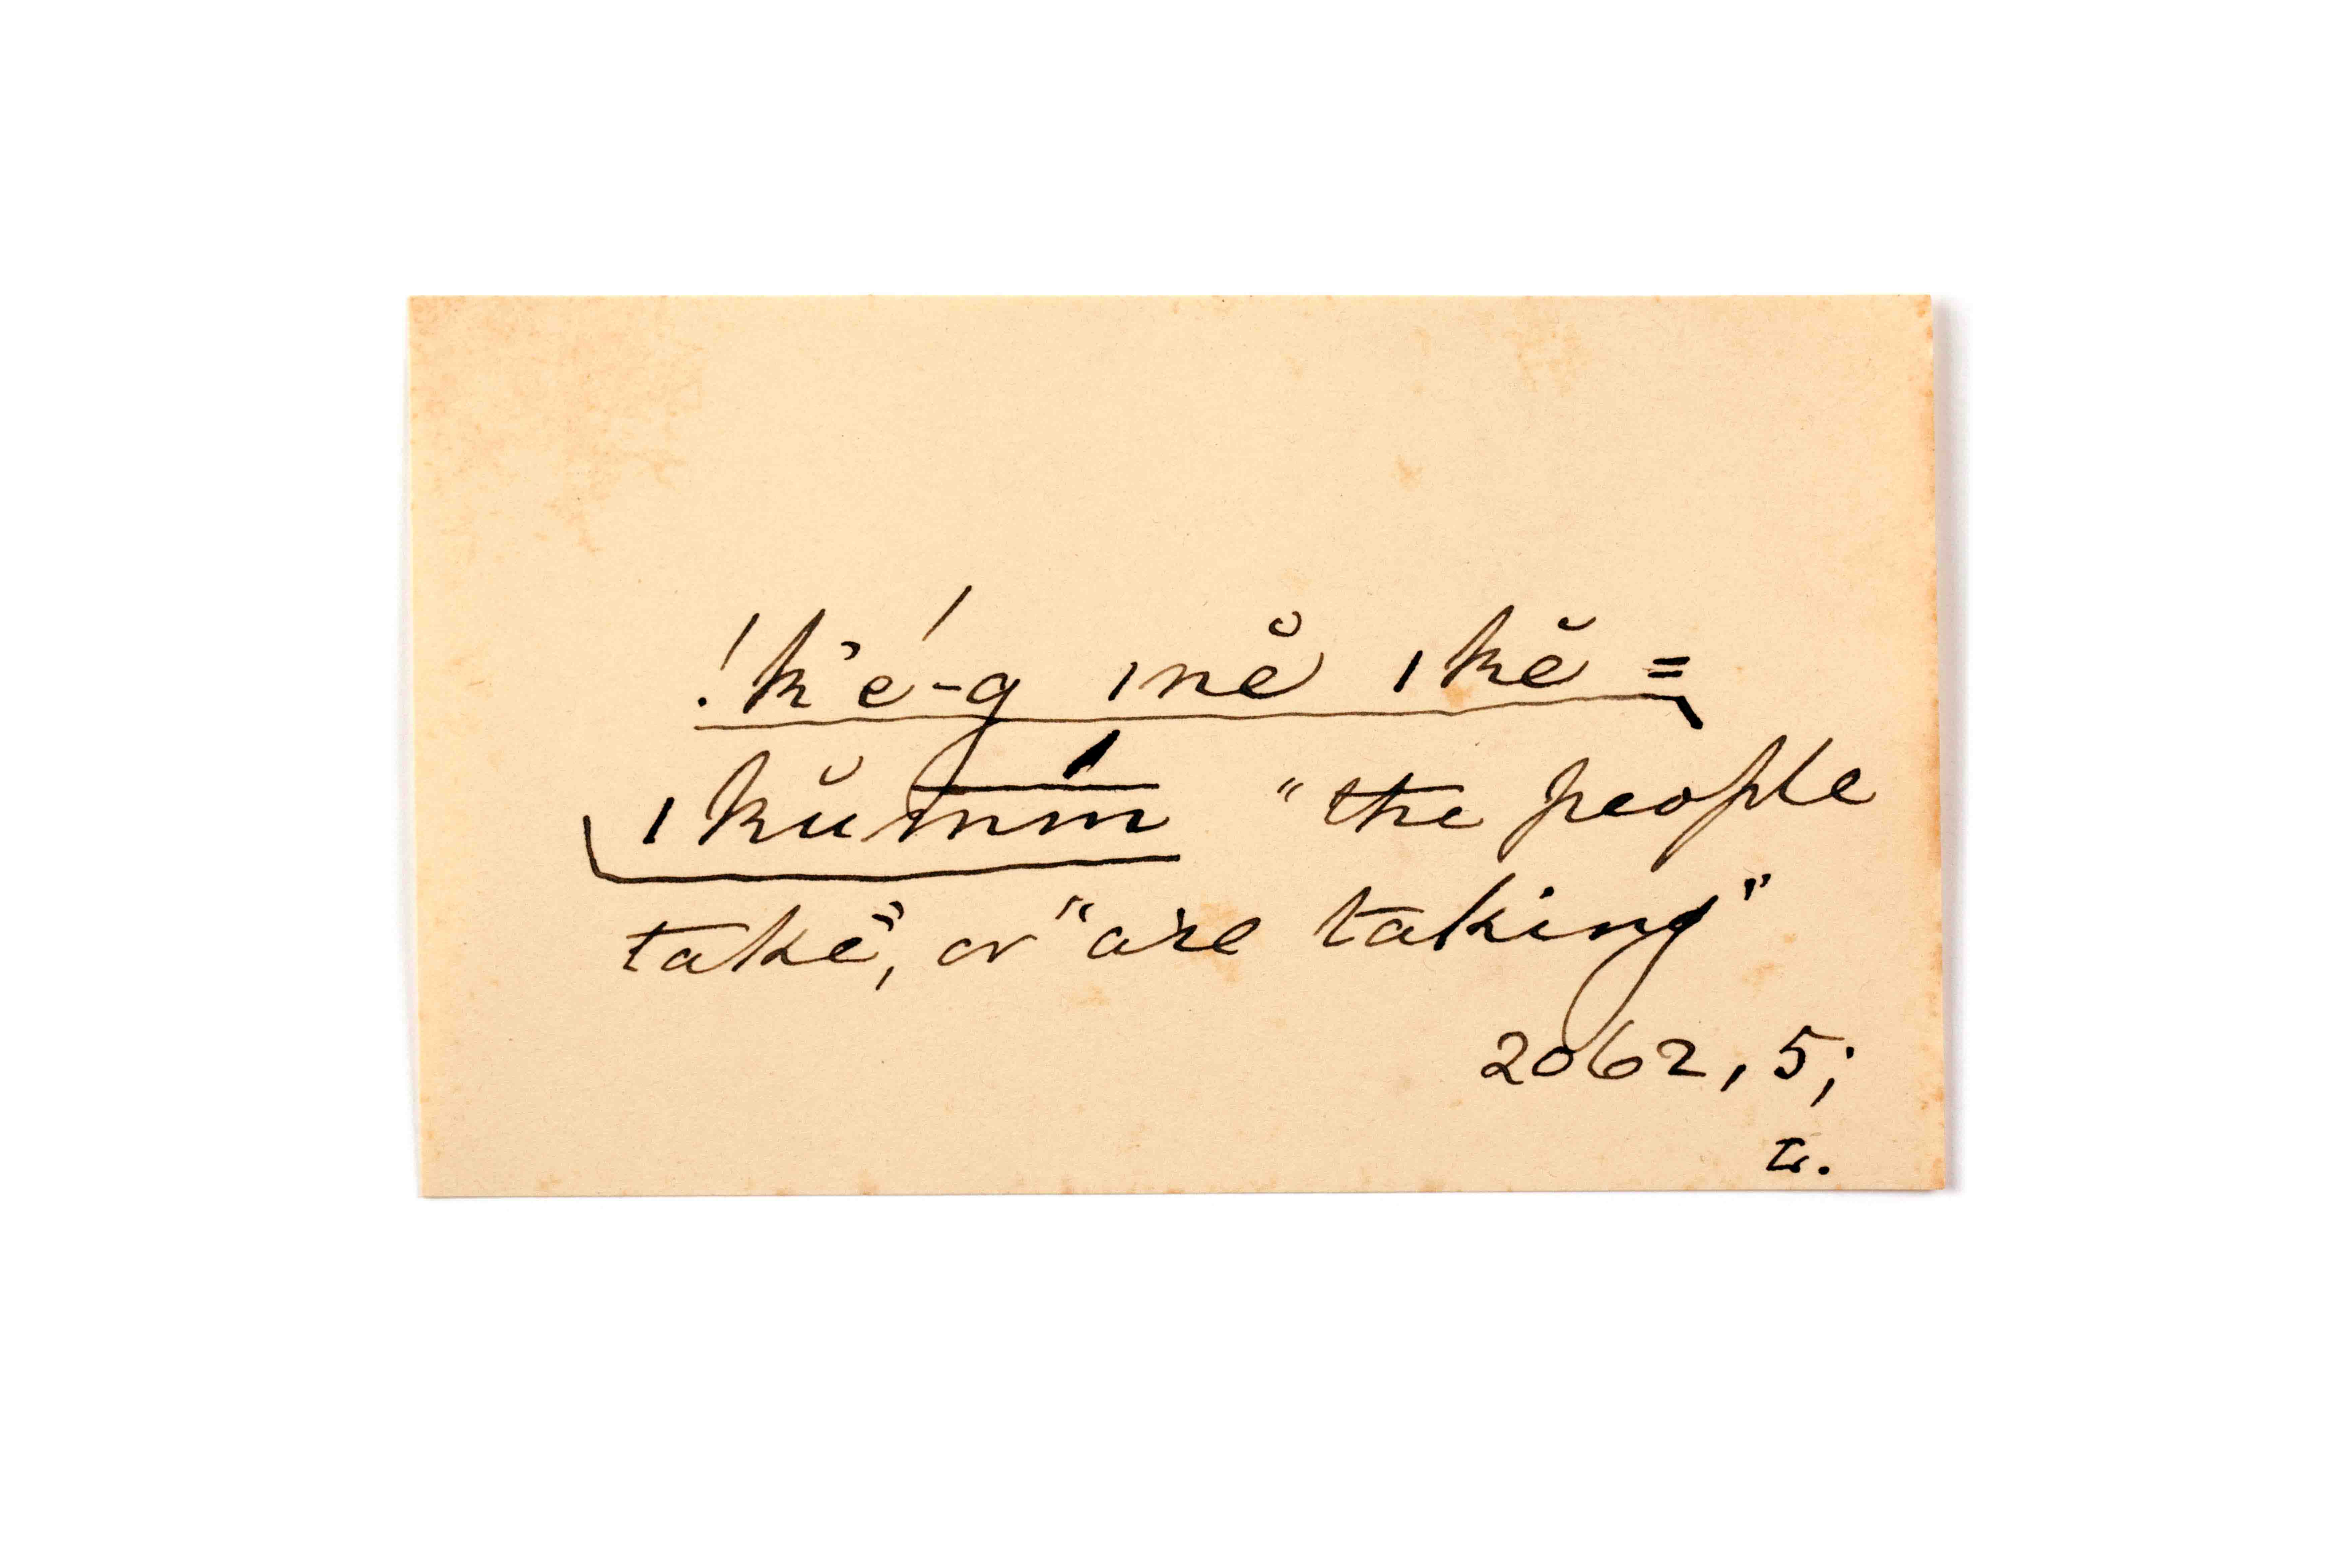 !kʼé-g ǀnĕ ǀkĕ=
ǀkŭm̅ḿ̅ "the people
take", or "are taking"
2062, 5;